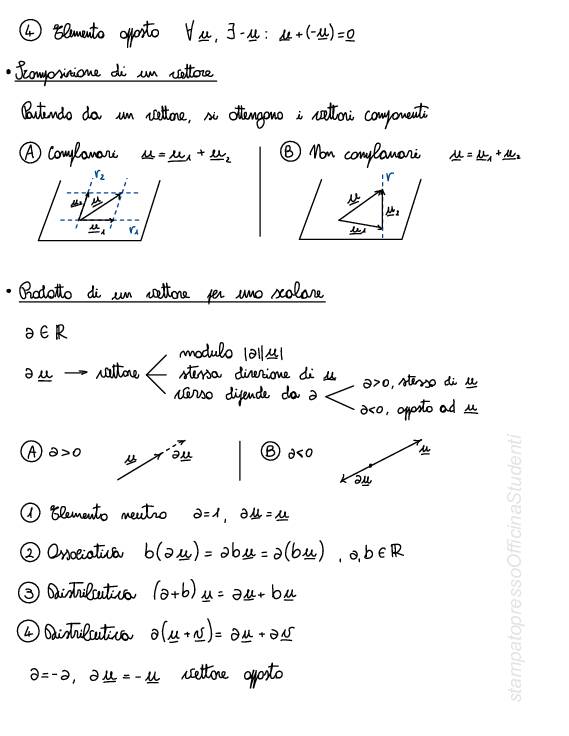 ④ Elemento opposto ∀ u, ∃ -u : u + (-u) = 0
• Scomposizione di un vettore
Partendo da un vettore, si ottengono i vettori componenti
Ⓐ Complanari u = u₁ + u₂
Ⓑ Non complanari u = u₁ + u₂
r₂
u₂ u
u₁ r₁
r
u u₂
u₁
• Prodotto di un vettore per uno scalare
a ∈ ℝ
a u → vettore
modulo |a||u|
stessa direzione di u
verso dipende da a
a>0, stesso di u
a<0, opposto ad u
Ⓐ a>0 u au
Ⓑ a<0 u au
① Elemento neutro a=1, au = u
② Associativa b(au) = abu = a(bu) , a,b ∈ ℝ
③ Distributiva (a+b) u = au + bu
④ Distributiva a(u + v) = au + av
a=-a, au = -u vettore opposto
stampatopressoOfficinaStudenti